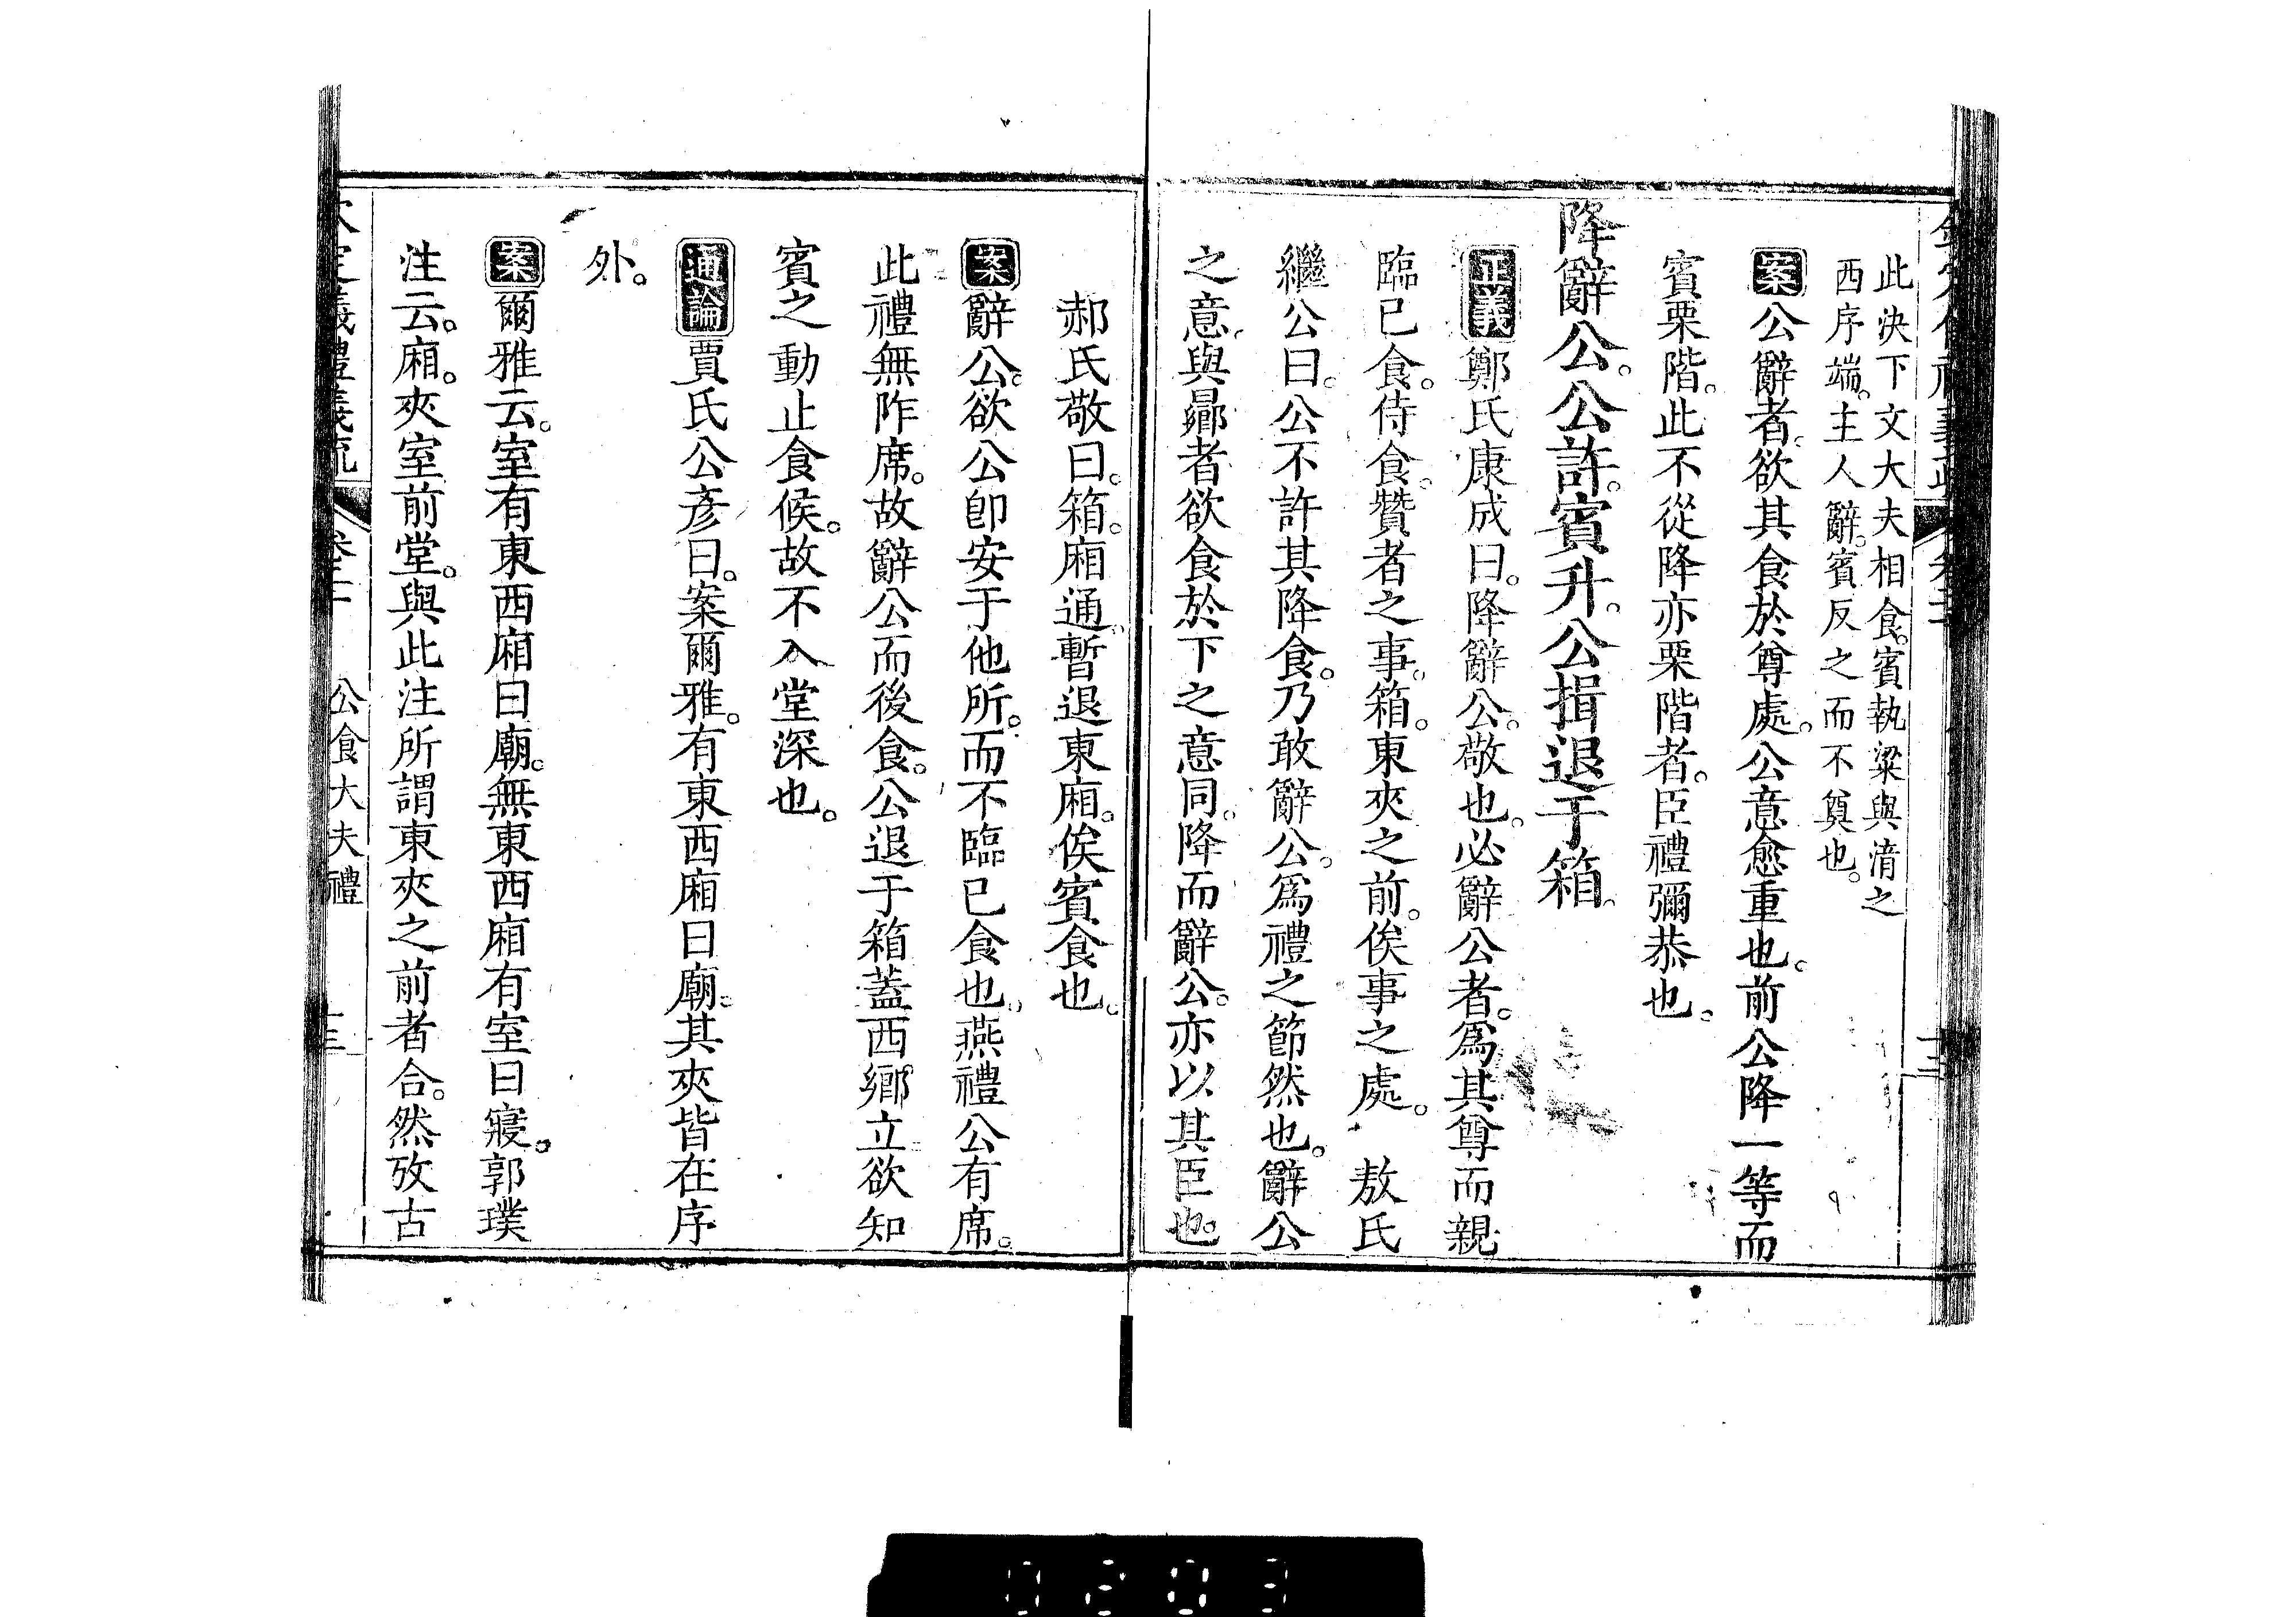 此決下文大夫相食。賓執粱與湆之
西序端。主人辭。賓反之而不奠也。
案公辭者。欲其食於尊處。公意愈重也。前公降一等而
賓栗階。此不從降亦栗階者。臣禮彌恭也。
降辭公。公許。賓升。公揖退于箱。
正義鄭氏康成曰。降辭公。敬也。必辭公者。爲其尊而親
臨己食。侍食。贊者之事。箱。東夾之前。俟事之處。 敖氏
繼公曰。公不許其降食。乃敢辭公。爲禮之節然也。辭公
之意。與曏者欲食於下之意同。降而辭公。亦以其臣也。
郝氏敬曰。箱。廂通。暫退東廂。俟賓食也。
案辭公。欲公卽安于他所。而不臨己食也。燕禮公有席。
此禮無阼席。故辭公而後食。公退于箱蓋西鄉立欲知
賓之動止食候。故不入堂深也。
通論賈氏公彥曰。案爾雅。有東西廂曰廟。其夾皆在序
外。
案爾雅云。室有東西廂曰廟。無東西廂有室曰寢。郭璞
注云。廂。夾室前堂。與此注所謂東夾之前者合。然攷古
公食大夫禮
0203